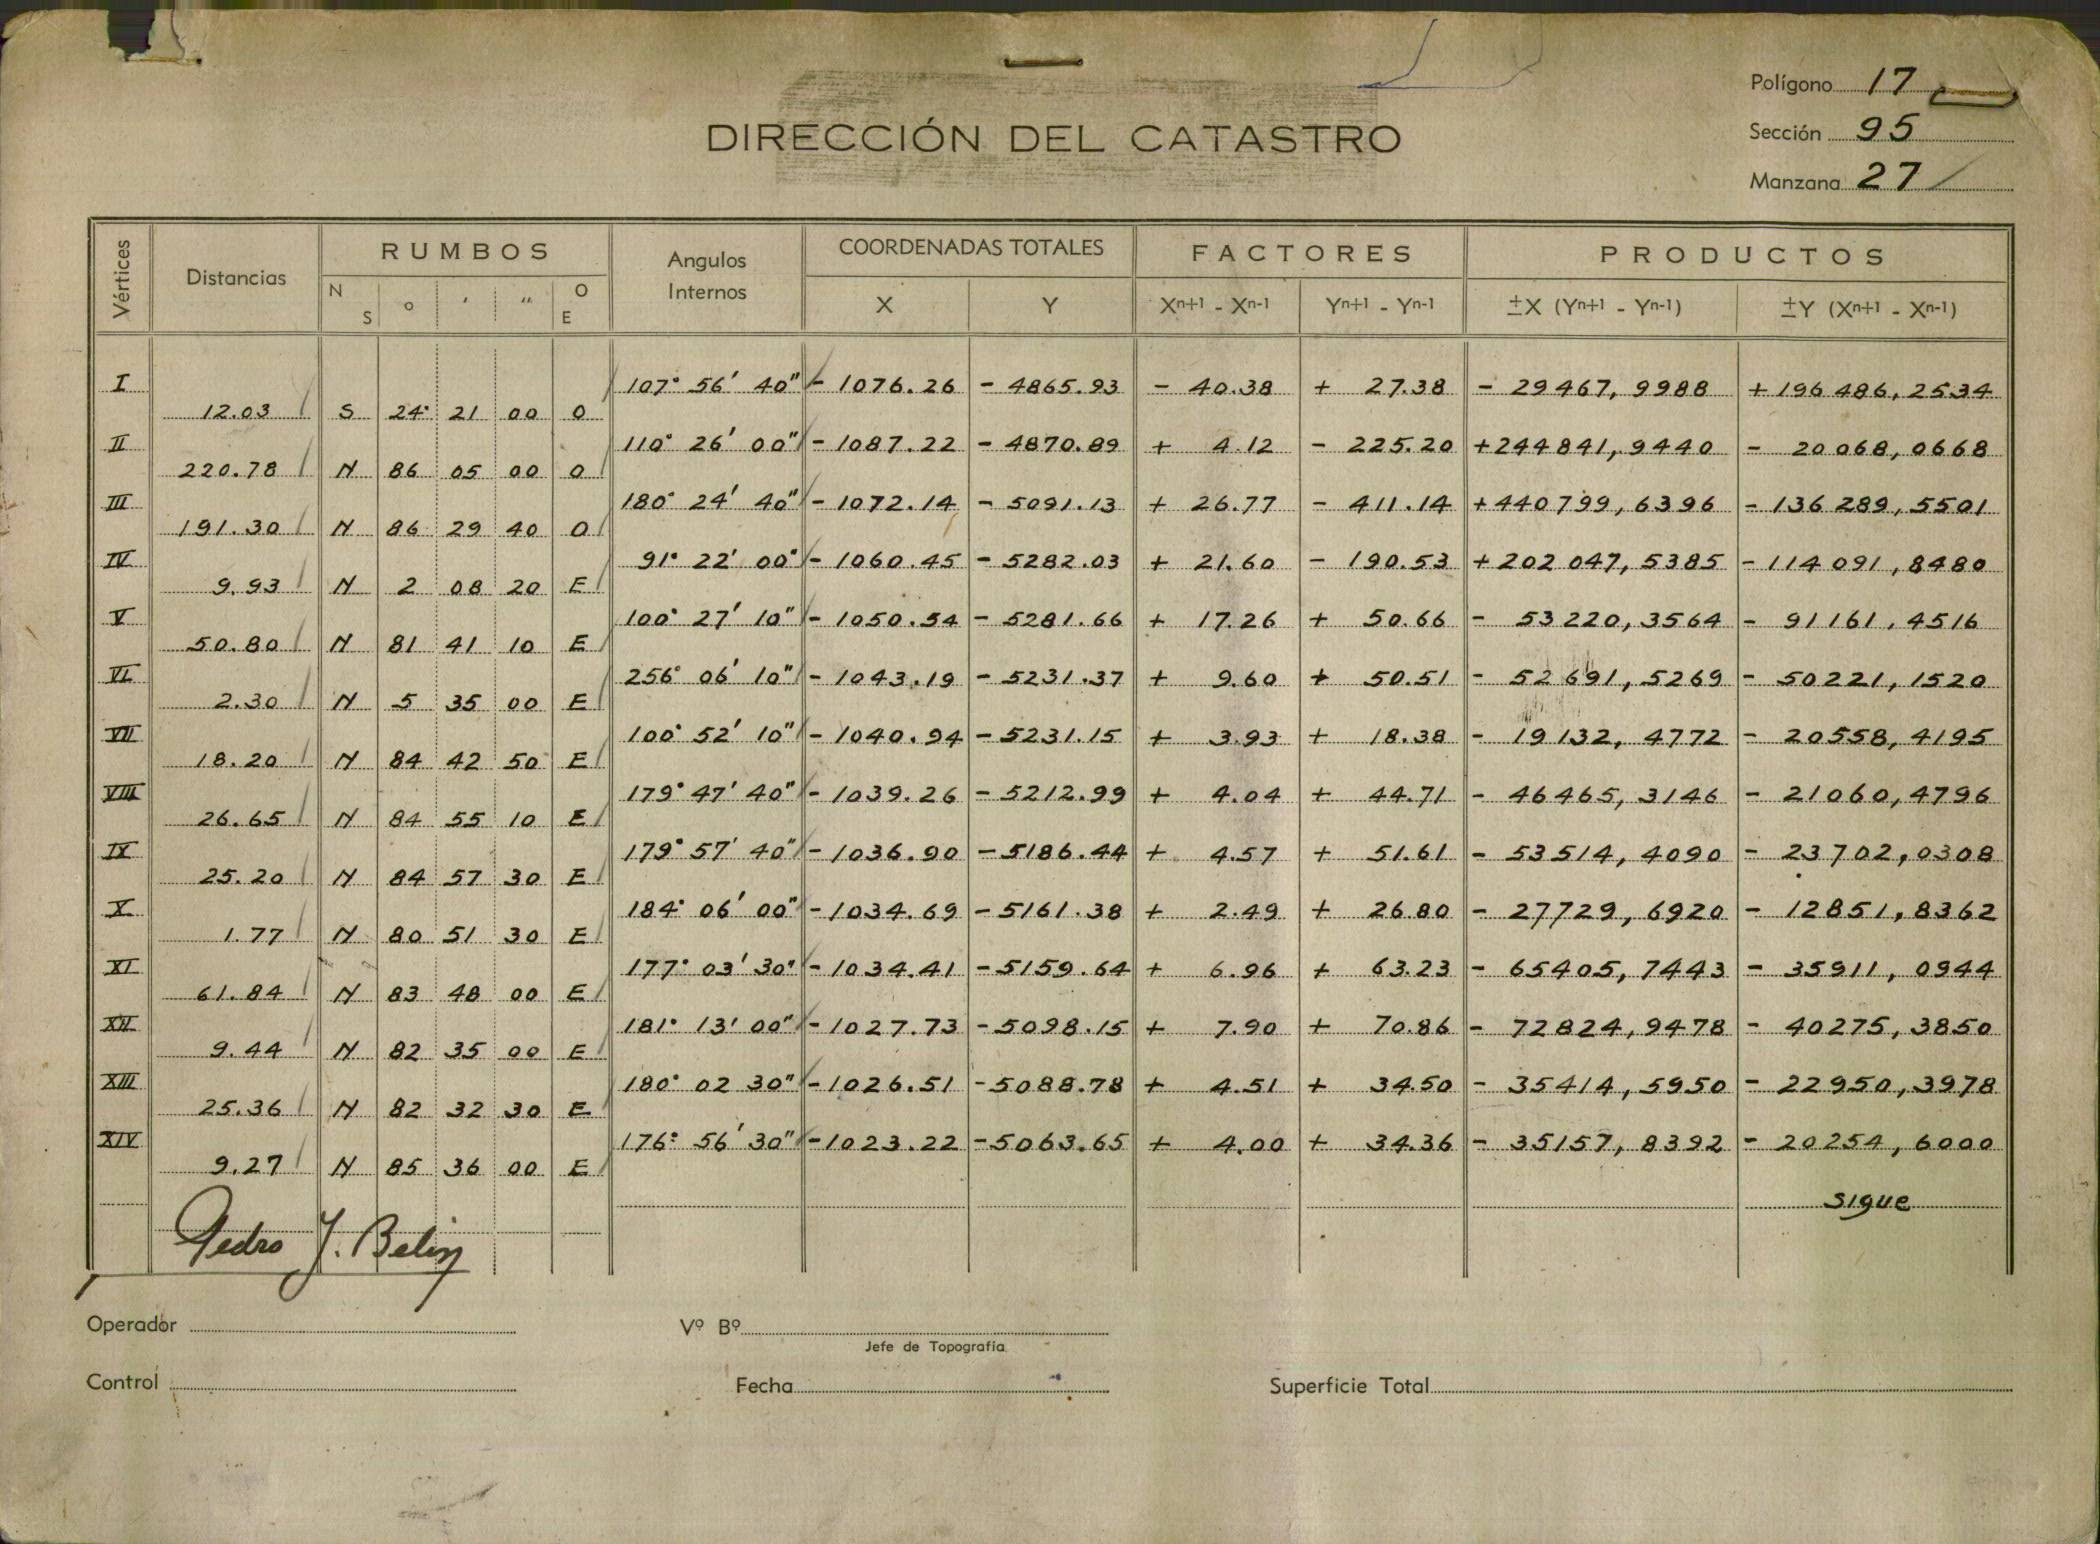 Polígono 17
DIRECCIÓN DEL CATASTRO
Sección 95
Manzana 27
Vértices Distancias RUMBOS Angulos Internos COORDENADAS TOTALES FACTORES PRODUCTOS
N S ° ʹ ʺ O E X Y Xn+1 - Xn-1 Yn+1 - Yn-1 ±X (Yn+1 - Yn-1) ±Y (Xn+1 - Xn-1)
I 107° 56' 40" - 1076.26 - 4865.93 - 40.38 + 27.38 - 29467,9988 + 196486,2534
12.03 S 24° 21 00 O
II 110° 26' 00" - 1087.22 - 4870.89 + 4.12 - 225.20 + 244841,9440 - 20068,0668
220.78 N 86 05 00 O
III 180° 24' 40" - 1072.14 - 5091.13 + 26.77 - 411.14 + 440799,6396 - 136289,5501
191.30 N 86 29 40 O
IV 91° 22' 00" - 1060.45 - 5282.03 + 21.60 - 190.53 + 202047,5385 - 114091,8480
9.93 N 2 08 20 E
V 100° 27' 10" - 1050.54 - 5281.66 + 17.26 + 50.66 - 53220,3564 - 91161,4516
50.80 N 81 41 10 E
VI 256° 06' 10" - 1043.19 - 5231.37 + 9.60 + 50.51 - 52691,5269 - 50221,1520
2.30 N 5 35 00 E
VII 100° 52' 10" - 1040.94 - 5231.15 + 3.93 + 18.38 - 19132,4772 - 20558,4195
18.20 N 84 42 50 E
VIII 179° 47' 40" - 1039.26 - 5212.99 + 4.04 + 44.71 - 46465,3146 - 21060,4796
26.65 N 84 55 10 E
IX 179° 57' 40" - 1036.90 - 5186.44 + 4.57 + 51.61 - 53514,4090 - 23702,0308
25.20 N 84 57 30 E
X 184° 06' 00" - 1034.69 - 5161.38 + 2.49 + 26.80 - 27729,6920 - 12851,8362
1.77 N 80 51 30 E
XI 177° 03' 30" - 1034.41 - 5159.64 + 6.96 + 63.23 - 65405,7443 - 35911,0944
61.84 N 83 48 00 E
XII 181° 13' 00" - 1027.73 - 5098.15 + 7.90 + 70.86 - 72824,9478 - 40275,3850
9.44 N 82 35 00 E
XIII 180° 02 30" - 1026.51 - 5088.78 + 4.51 + 34.50 - 35414,5950 - 22950,3978
25.36 N 82 32 30 E
XIV 176° 56' 30" - 1023.22 - 5063.65 + 4.00 + 34.36 - 35157,8392 - 20254,6000
9.27 N 85 36 00 E
sigue
Pedro J. Belin
Operador Vº Bº
Jefe de Topografía
Control Fecha Superficie Total